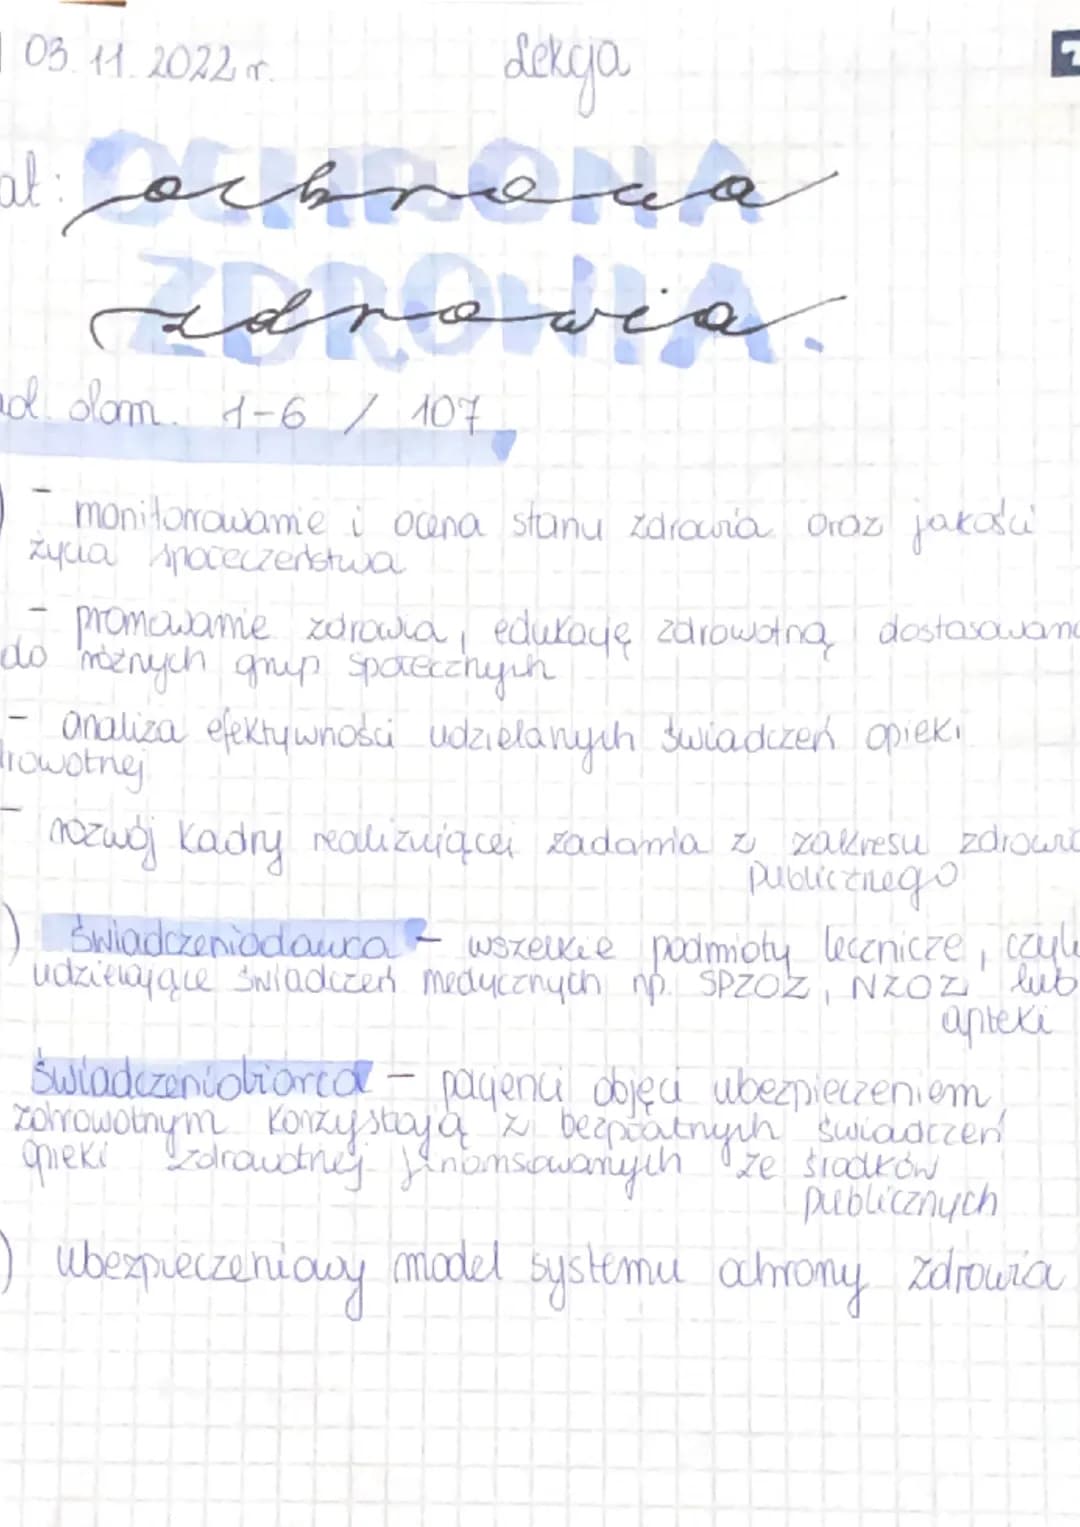 03.11.2022 r. Lekcja
at: OCHRONA ochrona
ZDROWIA. zdrowia
ad. dom. 1-6 / 107
) - monitorowanie i ocena stanu zdrowia oraz jakości
życia społeczeństwa
- promowanie zdrowia, edukację zdrowotną, dostosowan
do różnych grup społecznych
- analiza efektywności udzielanych świadczeń opieki
rowotnej
- rozwój kadry realizującej zadania z zakresu zdrowi
publicznego
) Świadczeniodawca - wszelkie podmioty lecznicze, czyli
udzielające świadczeń medycznych np. SPZOZ, NZOZ lub
apteki
Świadczeniobiorca - pacjenci objęci ubezpieczeniem
zdrowotnym korzystają z bezpłatnych świadczeń
opieki zdrowotnej finansowanych ze środków
publicznych
) ubezpieczeniowy model systemu ochrony zdrowia